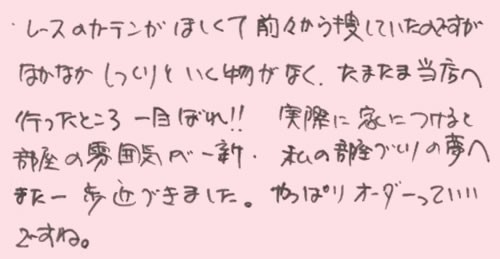 ・レースのカーテンがほしくて前々から捜していたのですが
なかなかしっくりといく物がなく、たまたま当店へ
行ったところ一目ぼれ!! 実際に家につけると
部屋の雰囲気が一新。私の部屋づくりの夢へ
また一歩近づきました。やっぱりオーダーっていい
ですね。